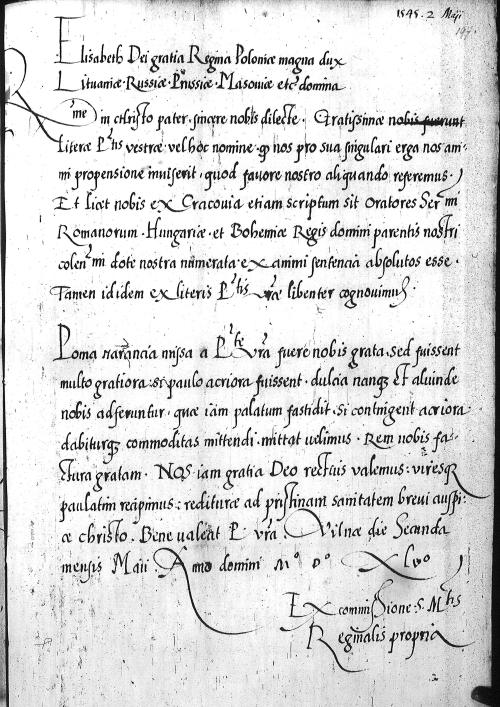 1545. 2 Maij
Elisabeth Dei gratia Regina Poloniæ magna dux
Lituaniæ. Russiæ. Prussiæ. Masoviæ etc. domina
Rme in christo pater. sincere nobis dilecte. Gratissimæ nobis fuerunt
literæ Ptis vestræ vel hoc nomine. qp nos pro sua singulari erga nos ani-
mi propensione inviserit. quod favore nostro aliquando referemus.
Et licet nobis ex Cracovia etiam scriptum sit Oratores Sermi
Romanorum. Hungariæ. et Bohemiæ Regis domini parentis nostri
colenmi dote nostra numerata ex animi sententia absolutos esse.
Tamen id idem ex literis Ptis vræ libenter cognovimus.
Poma narancia missa a Pte vra fuere nobis grata. sed fuissent
multo gratiora: si paulo acriora fuissent. dulcia nanq; et aliunde
nobis adferuntur. quæ iam palatum fastidit. Si contingent acriora
dabiturq; commoditas mittendi. mittat velimus. Rem nobis fa-
ctura gratam. Nos iam gratia Deo rectius valemus: viresq;
paulatim recipimus: redituræ ad pristinam sanitatem brevi auspi-
ce christo. Bene valeat P vra. Vilnæ die Secunda
mensis Maii Anno domini Mo Do XLvo
Ex commissione S. Mtis
Reginalis propria